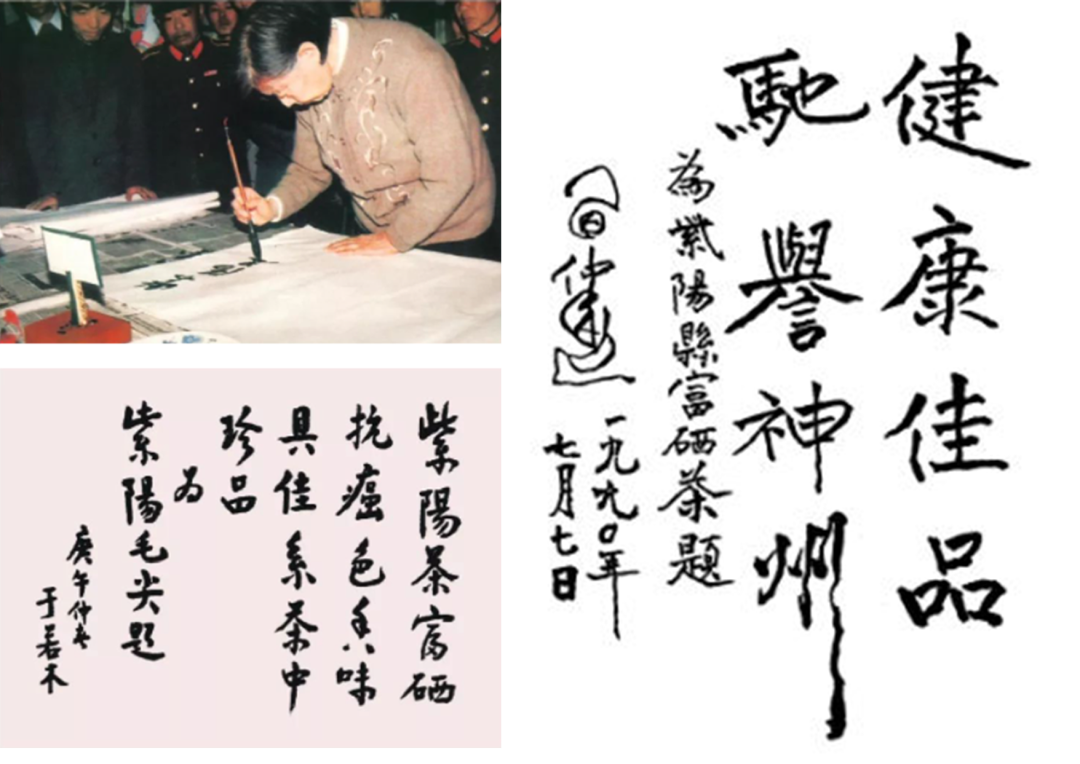 紫陽茶富硒
抗癌色香味
具佳系茶中
珍品
为
紫陽毛尖題
庚午仲春
于若木
健康佳品
馳譽神州
為紫陽縣富硒茶題
一九九〇年
七月七日